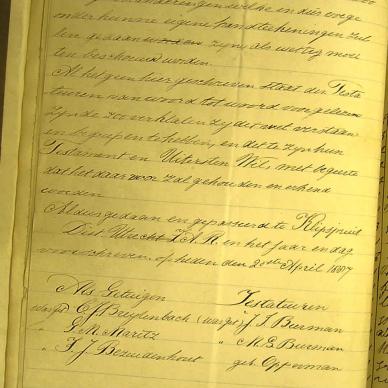 veranderingen welke in dier voege
onder hunne eigene handteekeningen zul
len gedaan worden zijn, als wettig moe
ten beschouwd worden.
Al hetgeen hier geschreven staat den Testa
teuren van woord tot woord voorgelezen
zijnde zoo verklaren zij dit wel verstaan
en begrepen te hebben, en dit te zijn hun
Testament en Uitersten Wil, met begeerte
dat het daarvoor zal gehouden en erkend
worden
Aldus gedaan en gepasseerd te Klipspruit
Dist Utrecht Z. A. R. in het jaar en dag
voorschreven op heden den 20ste April 1887
Als Getuigen Testateuren
(wasget) C. J. Breytenbach (wasget) J. J. Burman
" S. M. Maritz " M. E. Burman
" F. J. Bezuidenhout geb. Opperman